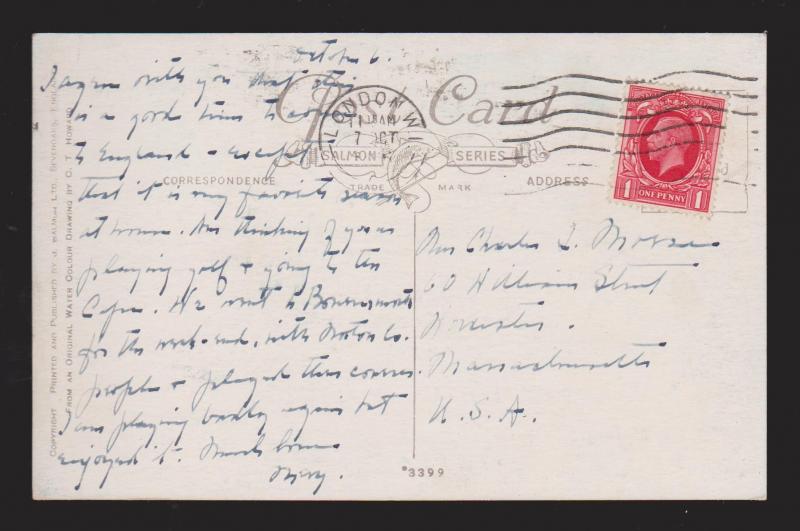 October 6.
I agree with you that this
is a good time to come
to England - except
that it is my favorite season
at home. Am thinking of you as
playing golf + going to the
Cape. We went to Bournemouth
for the week-end, with Norton Co.
people + played three courses.
I am playing badly again but
enjoyed it. Much love
Post Card
LONDON. W.1
11 AM
7 OCT
SALMON SERIES
TRADE MARK
CORRESPONDENCE
ADDRESS
1 ONE PENNY 1
Mrs Charles L. Morse
60 William Street
Worcester.
Massachusetts
U.S.A.
*3399
COPYRIGHT. PRINTED AND PUBLISHED BY J. SALMON LTD., SEVENOAKS, ENGLAND
FROM AN ORIGINAL WATER COLOUR DRAWING BY C. T. HOWARD